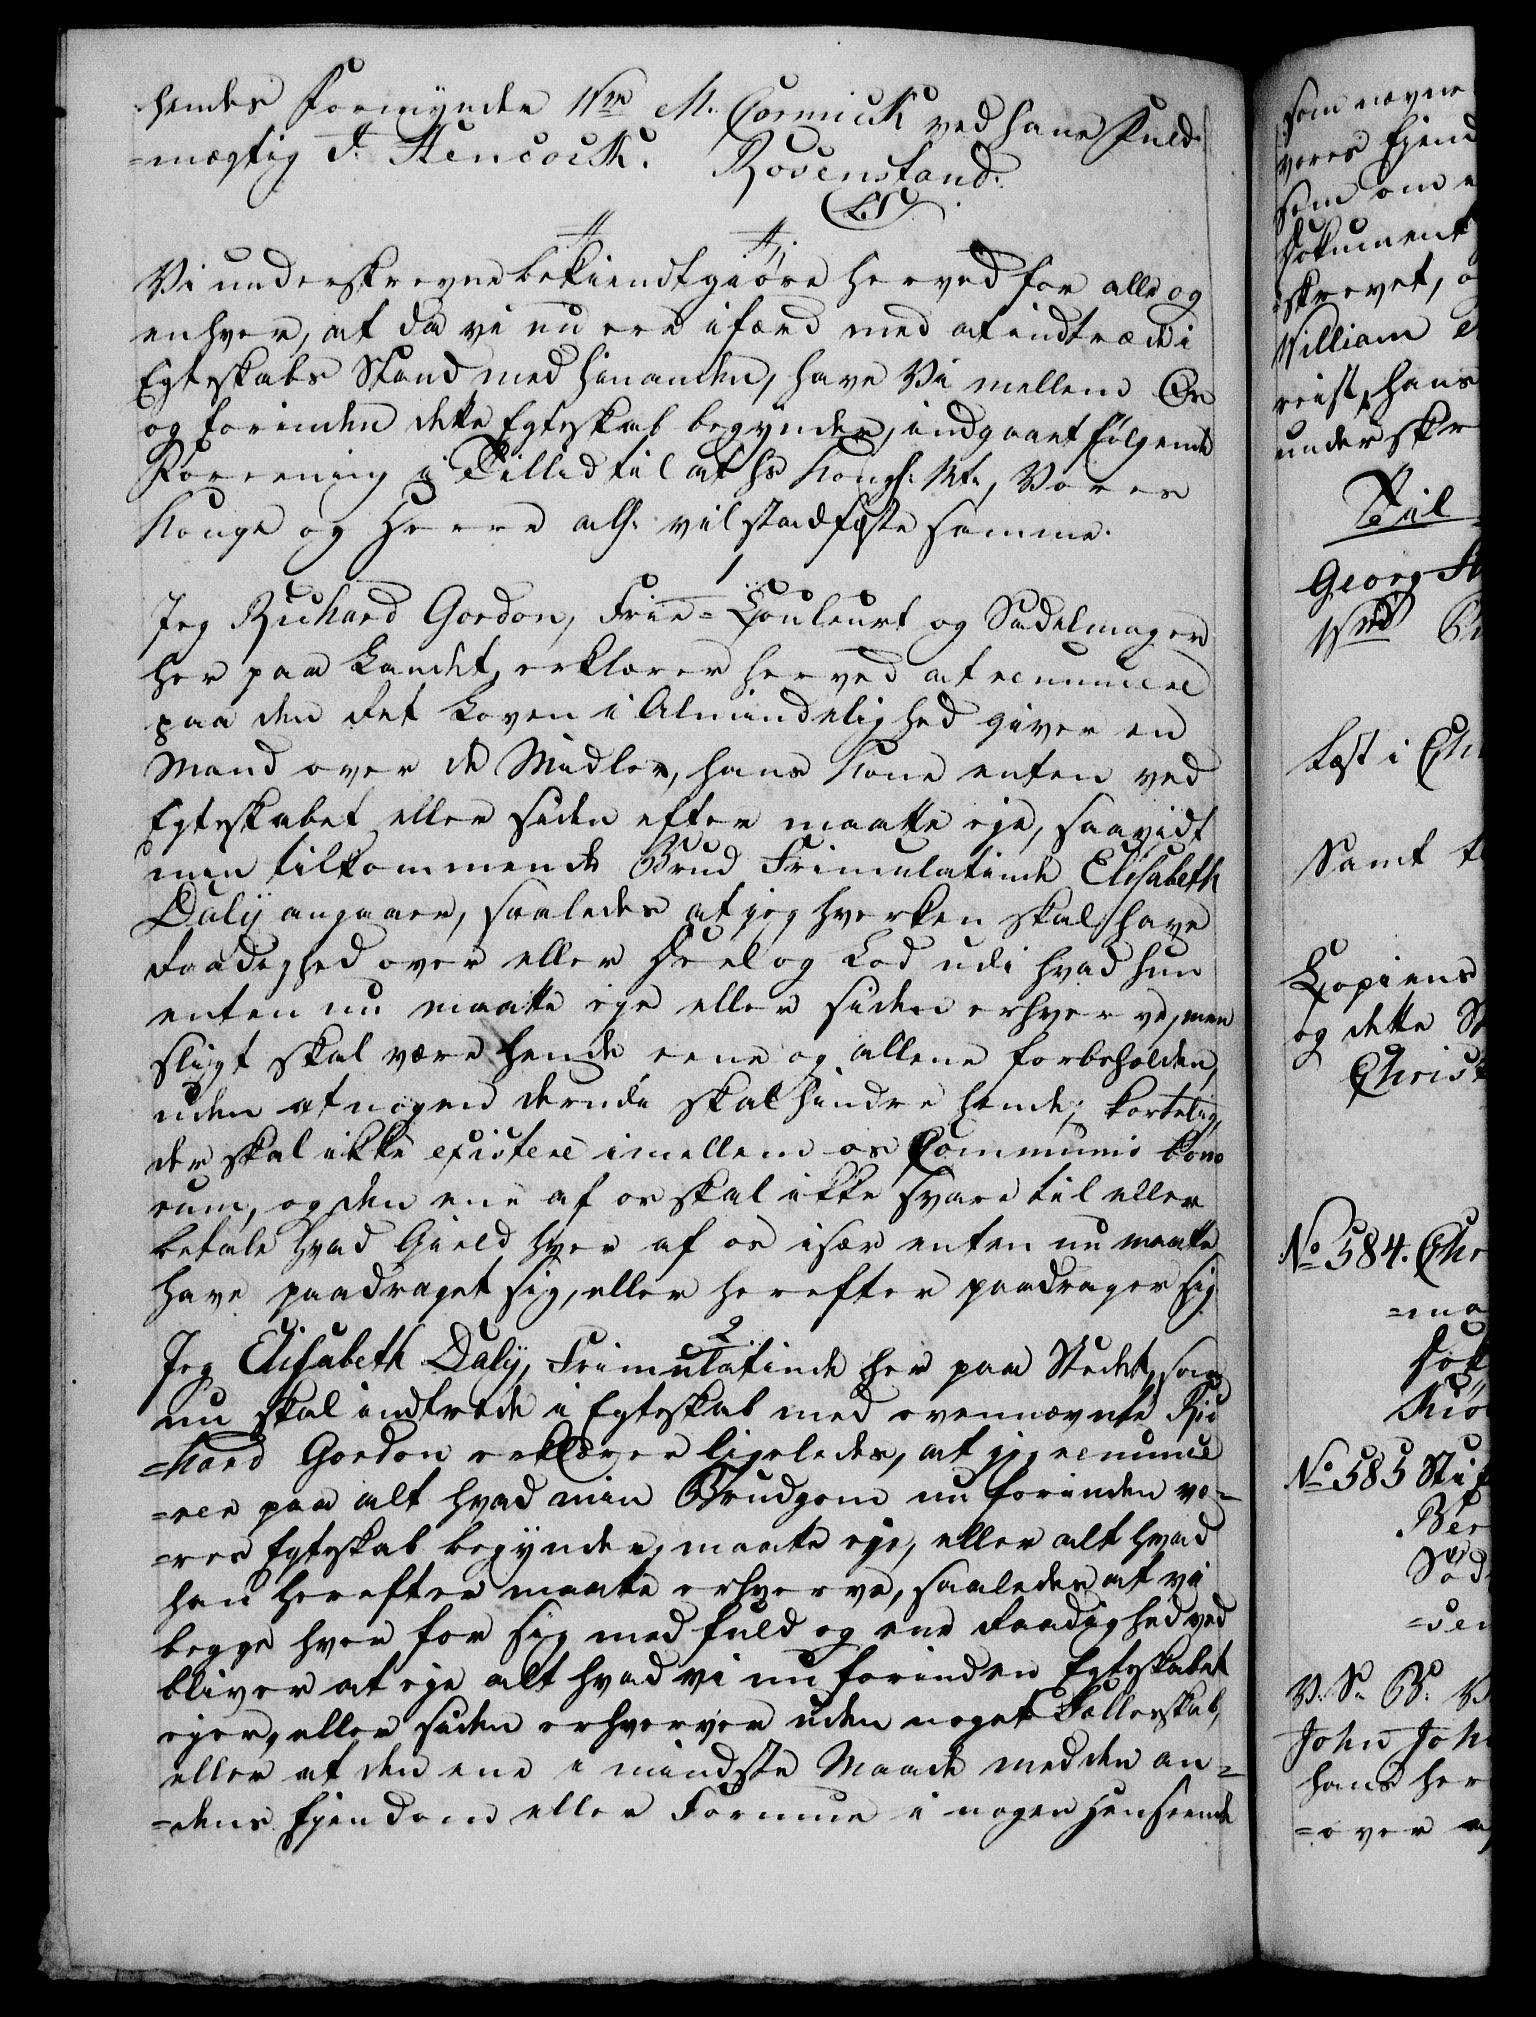 hendes Formynder Wm M. Cormick ved hans Fuld¬
=mægtig F. Hencock. Rosenstand.
(L.S.)
Vi underskrevne bekiendtgiøre herved for alle og
enhver, at da vi nu ere ifærd med at indtræde i
Egteskabs Stand med hinanden, have Vi mellem Os
og forinden dette Egteskab begynder, indgaaet følgende
Forening i Tillid til at Hs Kongl: Mt:, Vores
Konge og Herre allr: vil stadfæste samme.
1
Jeg Richard Gordon, Frie=Couleurt og Sadelmager
her paa Landet, erklærer herved at renuncere
paa den Ret Loven i Almindelighed giver en
Mand over de Midler, hans Kone enten ved
Egteskabet eller siden efter maatte eje, saavidt
min tilkommende Brud Frimulatinde Elisabeth
Daly angaaer, saaledes at jeg hverken skal have
Raadighed over eller Deel og Lod udi hvad hun
enten nu maatte eje eller siden erhverve, men
sligt skal være hende ene og allene forbeholden,
uden at nogen derudi skal hindre hende; kortelig,
der skal ikke existere imellem os Communio bono
rum, og den ene af os skal ikke svare til eller
betale hvad Gield hver af os især enten nu maatte
have paadraget sig, eller herefter paadrager sig.
2
Jeg Elisabeth Daly, Frimulatinde her paa Stedet, som
nu skal indtræde i Egteskab med ovennævnte Ric
=hard Gordon erklærer ligeledes, at jeg renunce
=rer paa alt hvad min Brudgom nu forinden vo=
=res Egteskab begynder, maatte eje, eller alt hvad
han herefter maatte erhverve, saaledes at vi
begge hver for sig med fuld og ene Raadighed ved
bliver at eje alt hvad vi nu forinden Egteskabet
ejer, eller siden erhverver uden noget Fællesskab,
eller at den ene i mindste Maade med den an=
=dens Ejendom eller Formue i nogen Henseende
som nævne
vores Ejend
som om
Dokument
skrevet,
William
reist, hans
underskr
Til
Georg
Wm
Læst i Chr
Samt
Copiens
og dette St
Christ
No 584. Chr
=ma
No 585 Sti
Ber
=sen
V. S. B. V
John Joh
hans her
=over